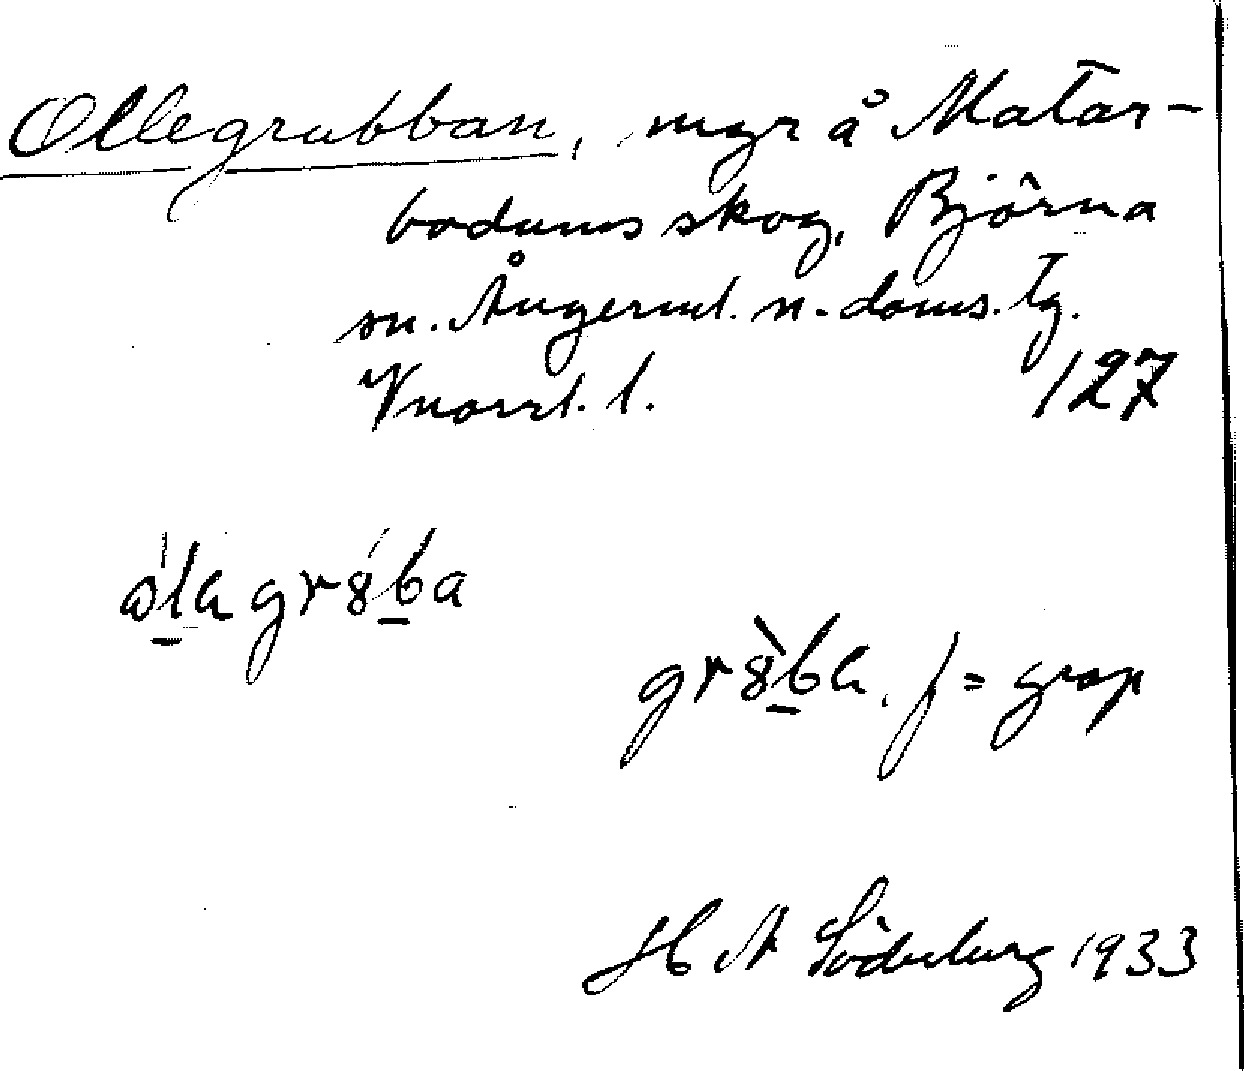 Ollegrubban, myr å Matar-
bodums skog, Björna
sn. Ångerml. n. doms. tg.
Vnorrl. l. 127
ɷ́la grȣ́ba
grȣ̀ba. f = grop
H A Söderberg 1933